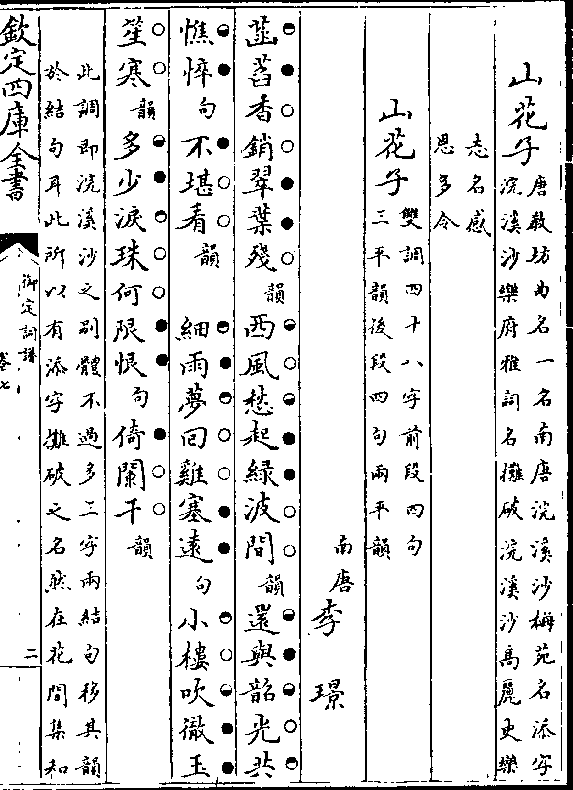 山花子
唐教坊曲名一名南唐浣溪沙梅苑名添字
浣溪沙樂府雅詞名攤破浣溪沙高麗史樂
志名感
恩多令
山花子
雙調四十八字前段四句
三平韻後段四句兩平韻
南唐李璟
菡萏香銷翠葉殘韻西風愁起緑波間韻還與韶光共
憔悴句不堪看韻 細雨夢回雞塞逺句小樓吹徹玉
笙寒韻多少淚珠何限恨句倚闌干韻
此調即浣溪沙之别體不過多三字兩結句移其韻
於結句耳此所以有添字攤破之名然在花間集和
欽定四庫全書
御定詞譜
卷七
二